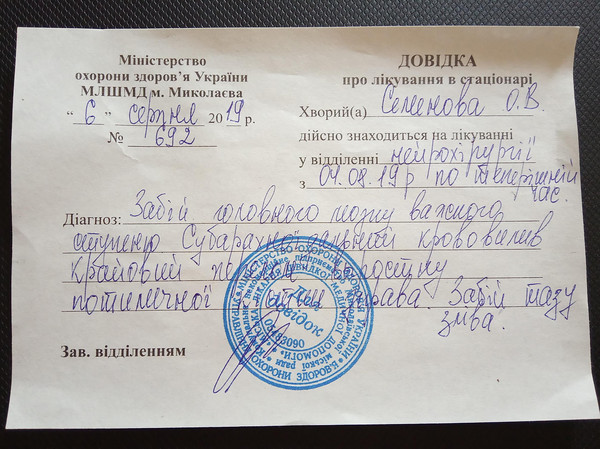 Міністерство
охорони здоров'я України
МЛШМД м. Миколаєва
"6" серпня 2019 р.
№ 692
ДОВІДКА
про лікування в стаціонарі
Хворий(а) Семенова О.В.
дійсно знаходиться на лікуванні
у відділенні нейрохірургії
з 04.08.19р по теперішній
час.
Діагноз: Забій головного мозку важкого
ступеню Субарахноїдальний крововилив
Крайовий перелом
потиличної справа. Забій тазу
зліва
Зав. відділенням
Для
довідок
МІНІСТЕРСТВО ОХОРОНИ ЗДОРОВ'Я УКРАЇНИ
ШВИДКОЇ МЕДИЧНОЇ ДОПОМОГИ
міської ради